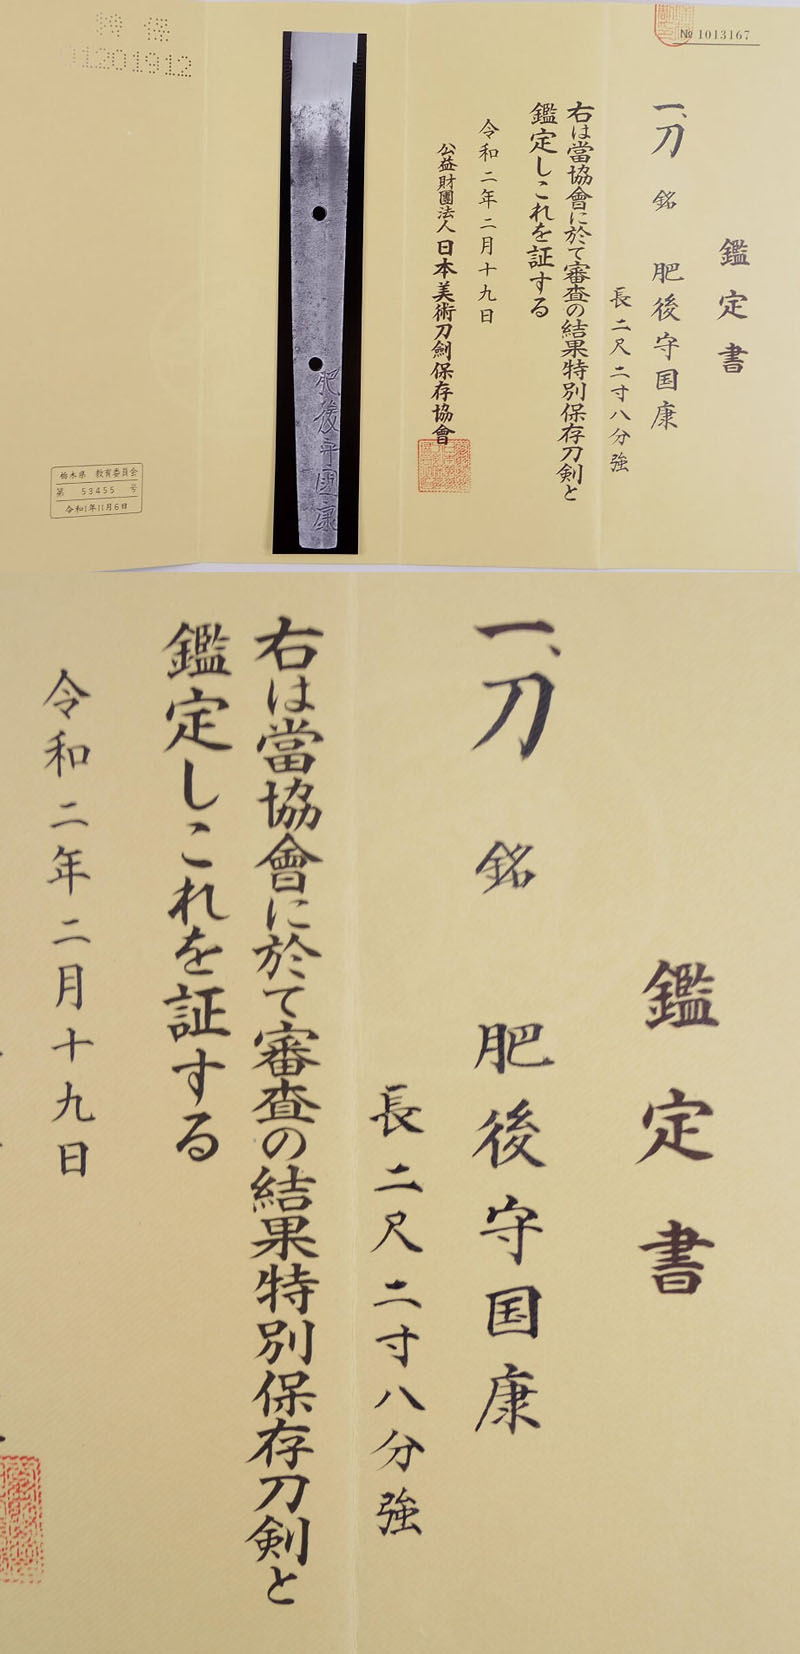 № 1013167
鑑定書
一、刀 銘 肥後守国康
長二尺二寸八分強
右は當協會に於て審査の結果特別保存刀剣と
鑑定しこれを証する
令和二年二月十九日
公益財團法人 日本美術刀劍保存協會
肥後守國康
特保
1201912
栃木県 教育委員会
第 53455 号
令和1年11月6日
鑑定書
一、刀 銘 肥後守国康
長二尺二寸八分強
右は當協會に於て審査の結果特別保存刀剣と
鑑定しこれを証する
令和二年二月十九日